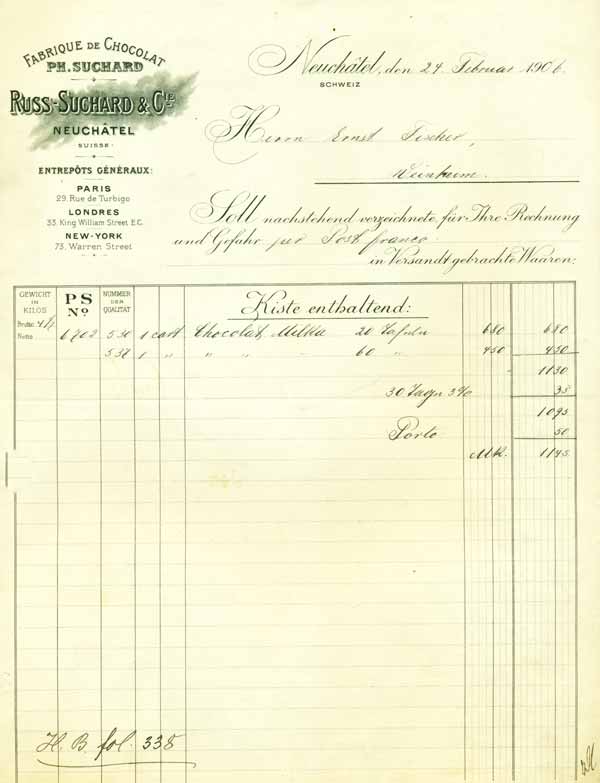 FABRIQUE DE CHOCOLAT
PH. SUCHARD
RUSS-SUCHARD & Cie
NEUCHÂTEL
SUISSE
ENTREPÔTS GÉNÉRAUX:
PARIS
29, Rue de Turbigo
LONDRES
33, King William Street E.C.
NEW-YORK
73, Warren Street
Neuchâtel, den 24 Februar 1906.
SCHWEIZ
Herrn Ernst Fischer,
Weinheim.
Soll nachstehend verzeichnete, für Ihre Rechnung
und Gefahr per Post franco
in Versandt gebrachte Waaren:
GEWICHT IN KILOS PS No NUMMER DER QUALITÄT Kiste enthaltend:
Brutto 6702 530 1 cart Chocolat Milka 20 Tafeln 680 680
Netto 537 1 " " " 60 " 450 450
1130
30 Tage 3% 35
1095
Porto 50
Mk. 1145
H. B. fol. 338